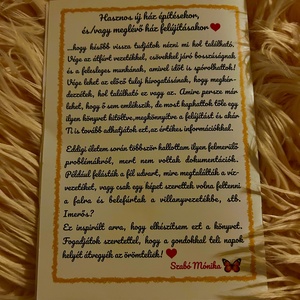 Hasznos új ház építésekor,
és/vagy meglévő ház felújításakor
...hogy később vissza tudjátok nézni mi hol található.
Vége az átfúrt vezetékkel, csövekkel járó bosszúságnak
és a felesleges munkának, amivel időt is spórolhattok!
Vége lehet az előző tulaj hívogatásának, hogy megkér-
dezzétek, hol található ez vagy az. Amire persze már
lehet, hogy ő sem emlékszik, de most kaphattok tőle egy
ilyen könyvet kitöltve, megkönnyítve a felújítást és akár
Ti is tovább adhatjátok ezt, az értékes információkkal.
Eddigi életem során többször hallottam ilyen felmerülő
problémákról, mert nem voltak dokumentációk.
Például felásták a fél udvart, mire megtalálták a víz-
vezetéket, vagy csak egy képet szerettek volna feltenni
a falra és belefúrtak a villanyvezetékbe, stb.
Ismerős?
Ez inspirált arra, hogy elkészítsem ezt a könyvet.
Fogadjátok szeretettel, hogy a gondokkal teli napok
helyét átvegyék az örömteliek!
Szabó Mónika